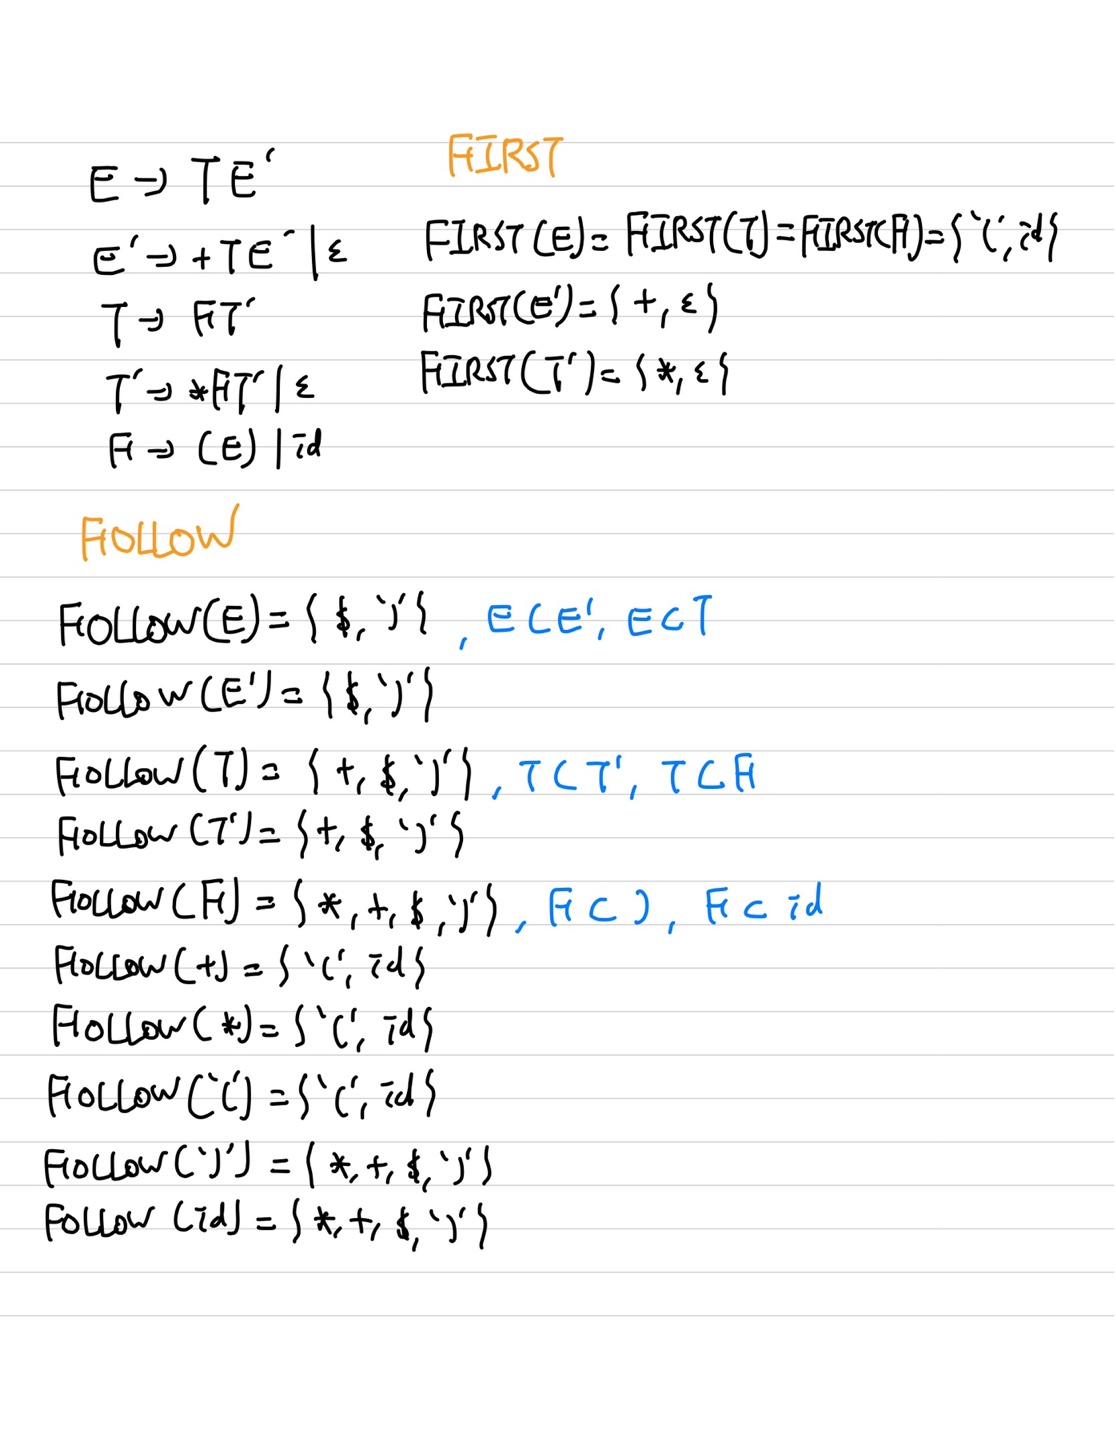 E → TE'
E' → +TE' | ε
T → FT'
T' → *FT' | ε
F → (E) | id
FIRST
FIRST(E) = FIRST(T) = FIRST(F) = { '(', id }
FIRST(E') = { +, ε }
FIRST(T') = { *, ε }
FOLLOW
FOLLOW(E) = { $, ')' } , E ⊂ E', E ⊂ T
FOLLOW(E') = { $, ')' }
FOLLOW(T) = { +, $, ')' } , T ⊂ T', T ⊂ F
FOLLOW(T') = { +, $, ')' }
FOLLOW(F) = { *, +, $, ')' } , F ⊂ ), F ⊂ id
FOLLOW(+) = { '(', id }
FOLLOW(*) = { '(', id }
FOLLOW('(') = { '(', id }
FOLLOW(')') = { *, +, $, ')' }
FOLLOW(id) = { *, +, $, ')' }